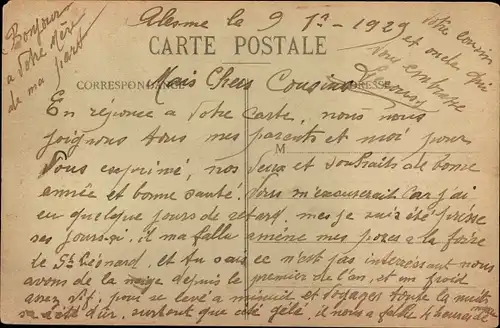 Bonjours
a votre mère
de ma part
Alesme la 9 1r - 1929
votre cousin
et oncle qui
vous embrasse
CARTE POSTALE
CORRESPONDANCE
ADRESSE
Mais Chers Cousins
En réponce a votre Carte, nous nous
joignons tous mes parents et moi pour
M
Vous exprimé, nos veux et souhaits de bonne
année et bonne santé. Vous m'excuserait Car j'ai
eu quelque jours de retard, mes je suis été prisse
ses jours-si, il ma fallu amène mes porcs a la foire
de St Léonard, et tu sais ce n'est pas interessant nous
avons de la neige depuis le premier de l'an, et un froid
assez vif, pour se levé a minuit et voyages toute la nuit
sa a été dur, surtout que été gélé, il nous a fallu 4 heures de